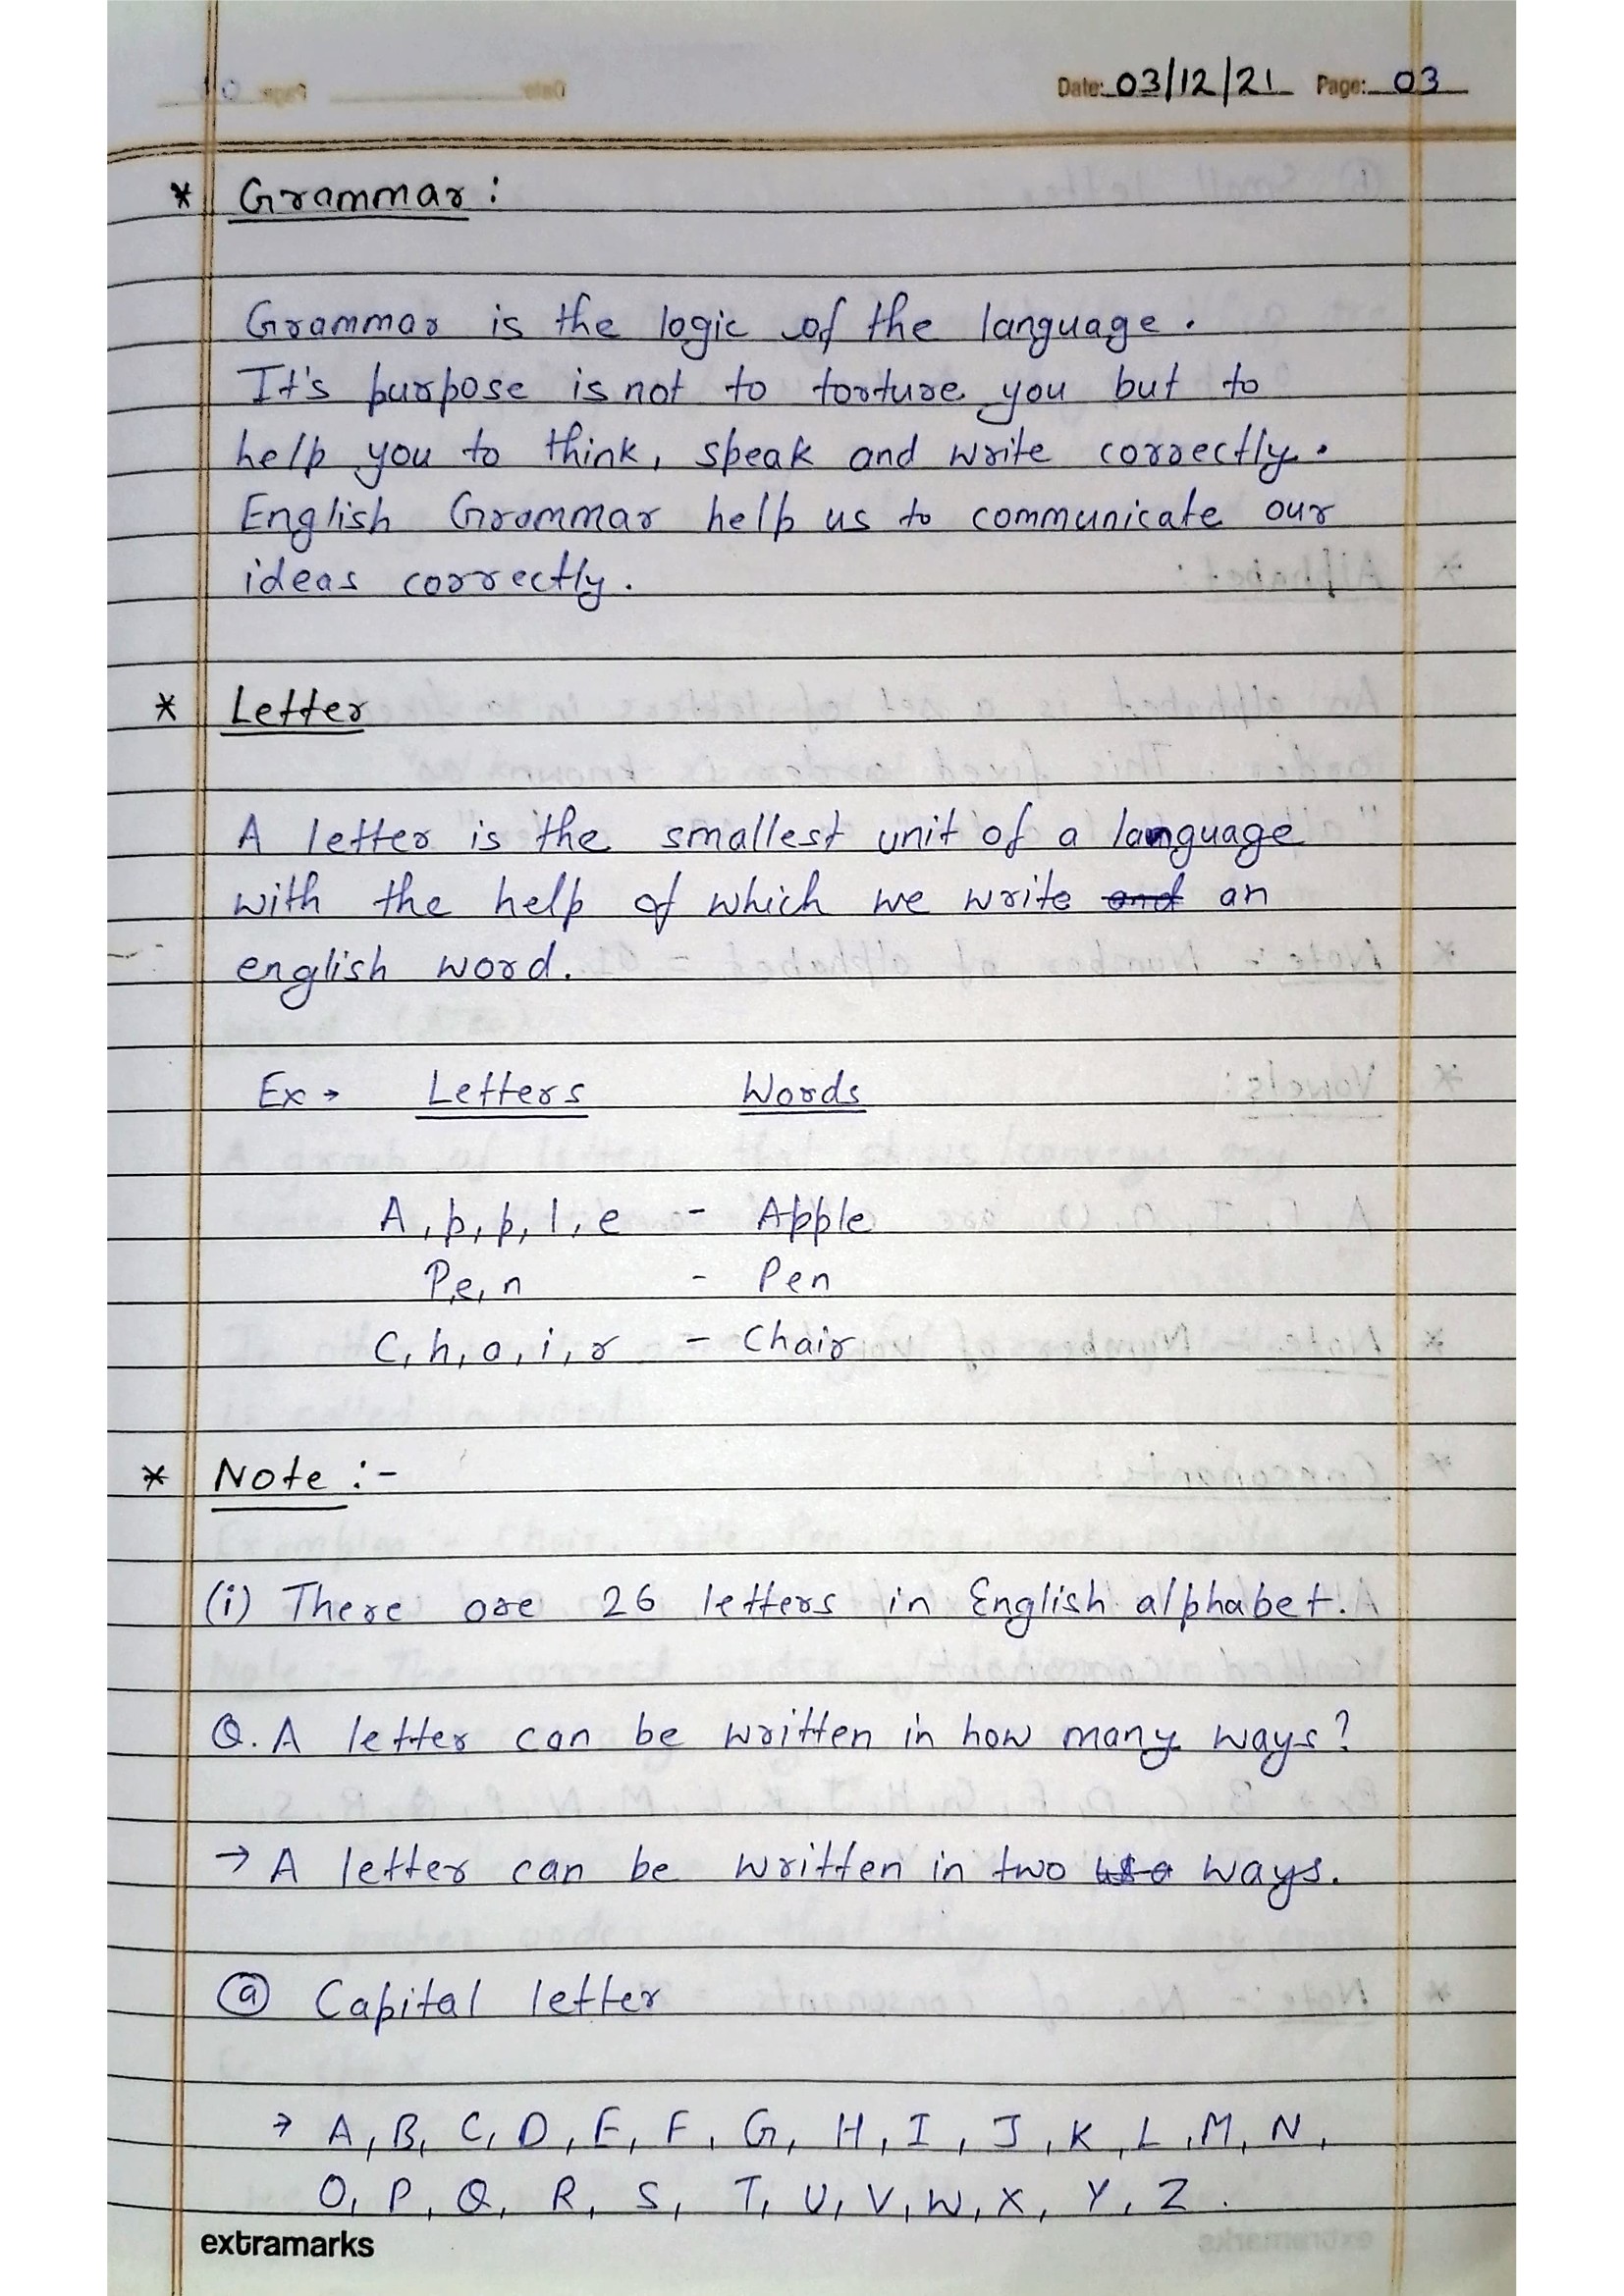 Date: 03/12/21 Page: 03
* Grammar:
Grammar is the logic of the language.
It's purpose is not to torture you but to
help you to think, speak and write correctly.
English Grammar help us to communicate our
ideas correctly.
* Letter
A letter is the smallest unit of a language
with the help of which we write and an
english word.
Ex → Letters Words
A, p, p, l, e - Apple
P, e, n - Pen
C, h, a, i, r - Chair
* Note :-
(i) There are 26 letters in English alphabet.
Q. A letter can be written in how many ways?
→ A letter can be written in two ways.
(a) Capital letter
→ A, B, C, D, E, F, G, H, I, J, K, L, M, N,
O, P, Q, R, S, T, U, V, W, X, Y, Z.
extramarks